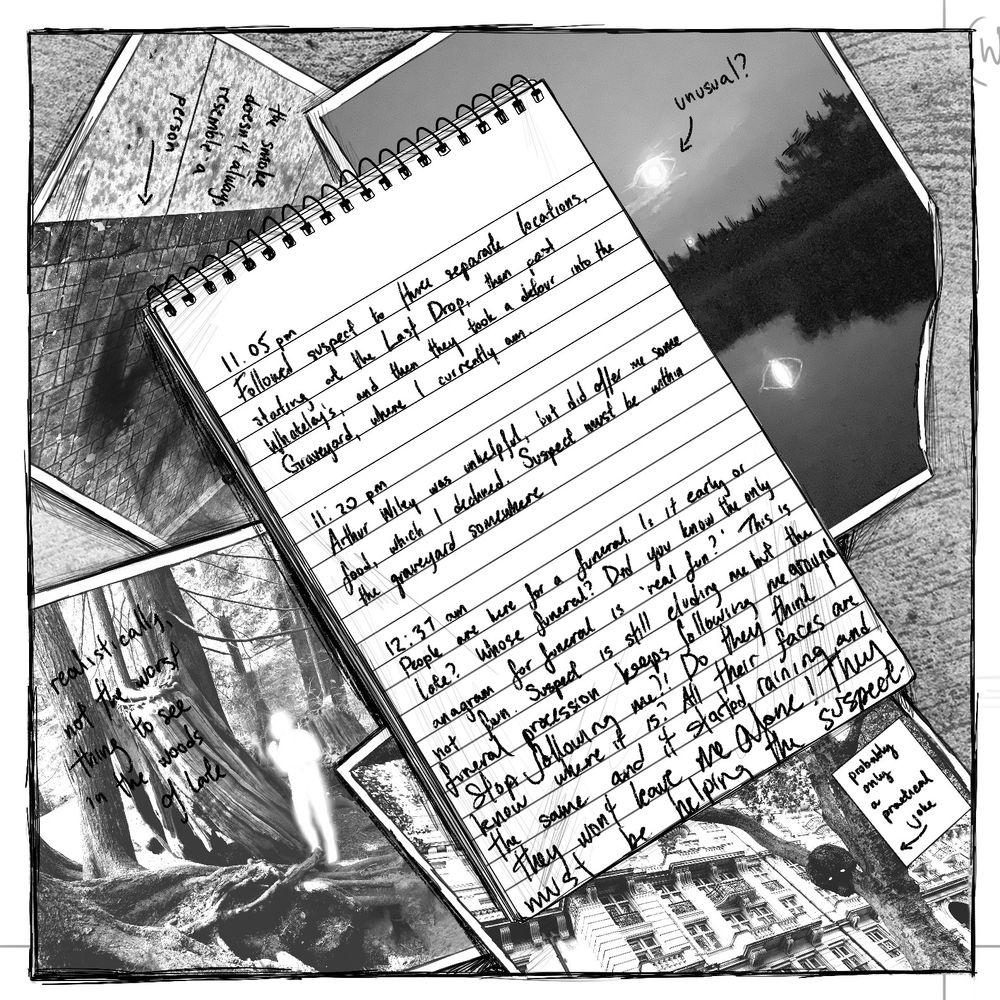 the smoke
doesn't always
resemble a
person
unusual?
11.05 pm
Followed suspect to three separate locations,
starting at the Last Drop, then past
Whateley's, and then they took a detour into the
Graveyard, where I currently am.
11.20 pm
Arthur Wiley was unhelpful, but did offer me some
food, which I declined. Suspect must be within
the graveyard somewhere
12.37 am
People are here for a funeral. Is it early or
late? Whose funeral? Did you know the only
anagram for funeral is 'real fun?' This is
not fun. Suspect is still eluding me but the
funeral procession keeps following me around
Stop following me?! Do they think I
know where it is? All their faces are
the same and it started raining and
they won't leave me alone! They
must be helping the suspect.
realistically,
not the worst
thing to see
in the woods
of late
probably
only
a
practical
joke